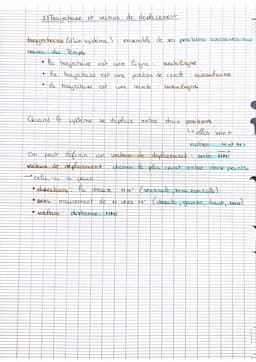 3) Trajectoire et vecteur de déplacement
trajectoire (d'un système) : ensemble de ses positions successives au
cours du temps
• la trajectoire est une ligne : rectiligne
• la trajectoire est une portion de cercle : curviligne
• la trajectoire est une courbe : curviligne
Quand le système se déplace entre deux positions
↳ elles sont
notées M et M'
On peut définir un vecteur de déplacement : noté MM'
vecteur de déplacement : chemin le plus court entre deux points
→ celui-ci a pour
• direction : la droite MM' (verticale, horizontale)
• sens : mouvement de M vers M' (droite, gauche, haut, bas)
• valeur : distance MM'